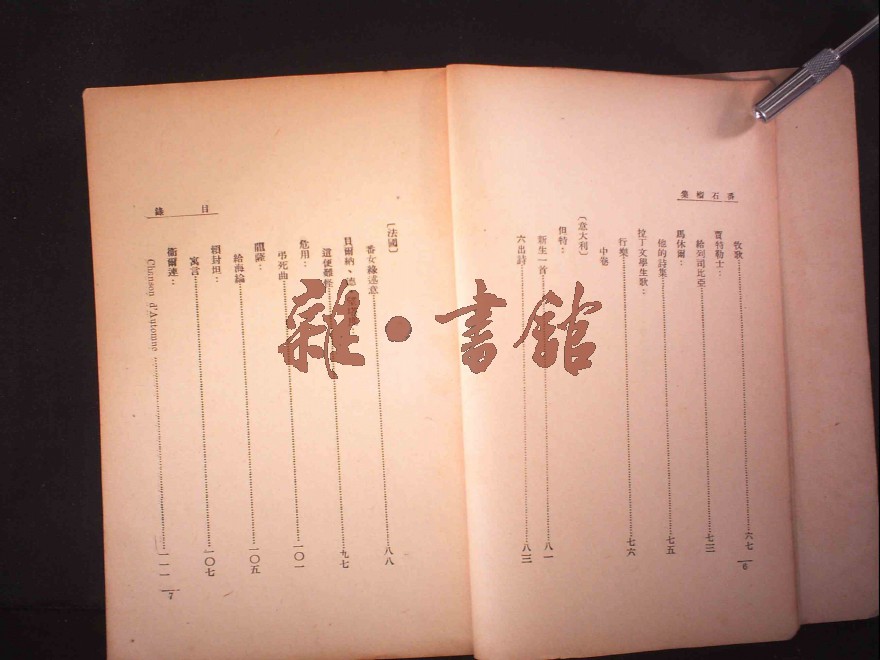 番石榴集
牧歌⋯⋯六七
賈特勒士：
給列司比亞⋯⋯七三
馬休爾：
他的詩集⋯⋯七五
拉丁文學生歌：
行樂⋯⋯七六
中卷
〔意大利〕
但特：
新生一首⋯⋯八一
六出詩⋯⋯八三
6
〔法國〕
番女緣述意⋯⋯八八
貝爾納、德
這便難怪⋯⋯九七
危用：
弔死曲⋯⋯一〇一
龍薩：
給海倫⋯⋯一〇五
賴封坦：
寓言⋯⋯一〇七
衞爾連：
Chanson d'Automne⋯⋯一一一
目錄
7
雜·書館